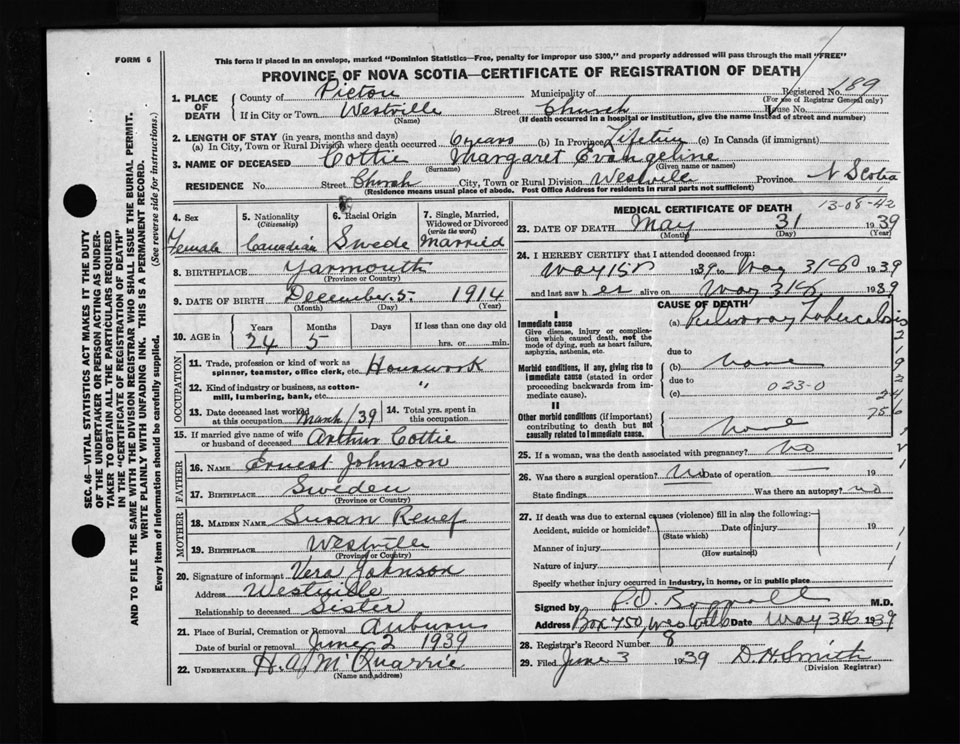 FORM 6
This form if placed in an envelope, marked "Dominion Statistics—Free, penalty for improper use $300," and properly addressed will pass through the mail "FREE"
PROVINCE OF NOVA SCOTIA—CERTIFICATE OF REGISTRATION OF DEATH
189
1. PLACE OF DEATH
County of Pictou Municipality of Registered No.
(For use of Registrar General only)
If in City or Town Westville Street Church House No.
(Name) (If death occurred in a hospital or institution, give the name instead of street and number)
2. LENGTH OF STAY (in years, months and days)
(a) In City, Town or Rural Division where death occurred 6 years (b) In Province Lifetime (c) In Canada (if immigrant)
3. NAME OF DECEASED Cottie Margaret Evangeline
(Surname) (Given name or names)
RESIDENCE No. Street Church City, Town or Rural Division Westville Province N Scotia
(Residence means usual place of abode. Post Office Address for residents in rural parts not sufficient)
4. Sex
Female
5. Nationality
(Citizenship)
Canadian
6. Racial Origin
Swede
7. Single, Married, Widowed or Divorced
(write the word)
Married
8. BIRTHPLACE Yarmouth
(Province or Country)
9. DATE OF BIRTH December 5 1914
(Month) (Day) (Year)
10. AGE in
Years Months Days If less than one day old
24 5 hrs. or min.
OCCUPATION
11. Trade, profession or kind of work as spinner, teamster, office clerk, etc. Housework
12. Kind of industry or business, as cotton-mill, lumbering, bank, etc. "
13. Date deceased last worked at this occupation March/39
14. Total yrs. spent in this occupation
15. If married give name of wife or husband of deceased Arthur Cottie
FATHER
16. NAME Ernest Johnson
17. BIRTHPLACE Sweden
(Province or Country)
MOTHER
18. MAIDEN NAME Susan
19. BIRTHPLACE Westville
(Province or Country)
20. Signature of informant Vera Johnson
Address Westville
Relationship to deceased Sister
21. Place of Burial, Cremation or Removal Auburn
Date of burial or removal June 2 1939
22. UNDERTAKER H. McQuarrie
(Name and address)
MEDICAL CERTIFICATE OF DEATH
13-08-42
23. DATE OF DEATH May 31 1939
(Month) (Day) (Year)
24. I HEREBY CERTIFY that I attended deceased from:
May 1939 to May 31 1939
and last saw her alive on May 31 1939
CAUSE OF DEATH
I
Immediate cause
Give disease, injury or complication which caused death, not the mode of dying, such as heart failure, asphyxia, asthenia, etc.
(a) Pulmonary Tuberculosis
due to
Morbid conditions, if any, giving rise to immediate cause (stated in order proceeding backwards from immediate cause).
(b) none
due to
023-0
(c)
II
Other morbid conditions (if important) contributing to death but not causally related to immediate cause.
none
25. If a woman, was the death associated with pregnancy? no
26. Was there a surgical operation? no Date of operation 19
State findings Was there an autopsy? no
27. If death was due to external causes (violence) fill in also the following:
Accident, suicide or homicide? Date of injury 19
(State which)
Manner of injury
(How sustained)
Nature of injury
Specify whether injury occurred in industry, in home, or in public place
Signed by M.D.
Address Box 750, Westville Date May 31 1939
28. Registrar's Record Number 8
29. Filed June 3 1939 D. H. Smith
(Division Registrar)
SEC. 46—VITAL STATISTICS ACT MAKES IT THE DUTY
OF THE UNDERTAKER OR PERSON ACTING AS UNDER-
TAKER TO OBTAIN ALL THE PARTICULARS REQUIRED
IN THE "CERTIFICATE OF REGISTRATION OF DEATH"
AND TO FILE THE SAME WITH THE DIVISION REGISTRAR WHO SHALL ISSUE THE BURIAL PERMIT.
WRITE PLAINLY WITH UNFADING INK. THIS IS A PERMANENT RECORD.
Every item of Information should be carefully supplied. (See reverse side for instructions.)